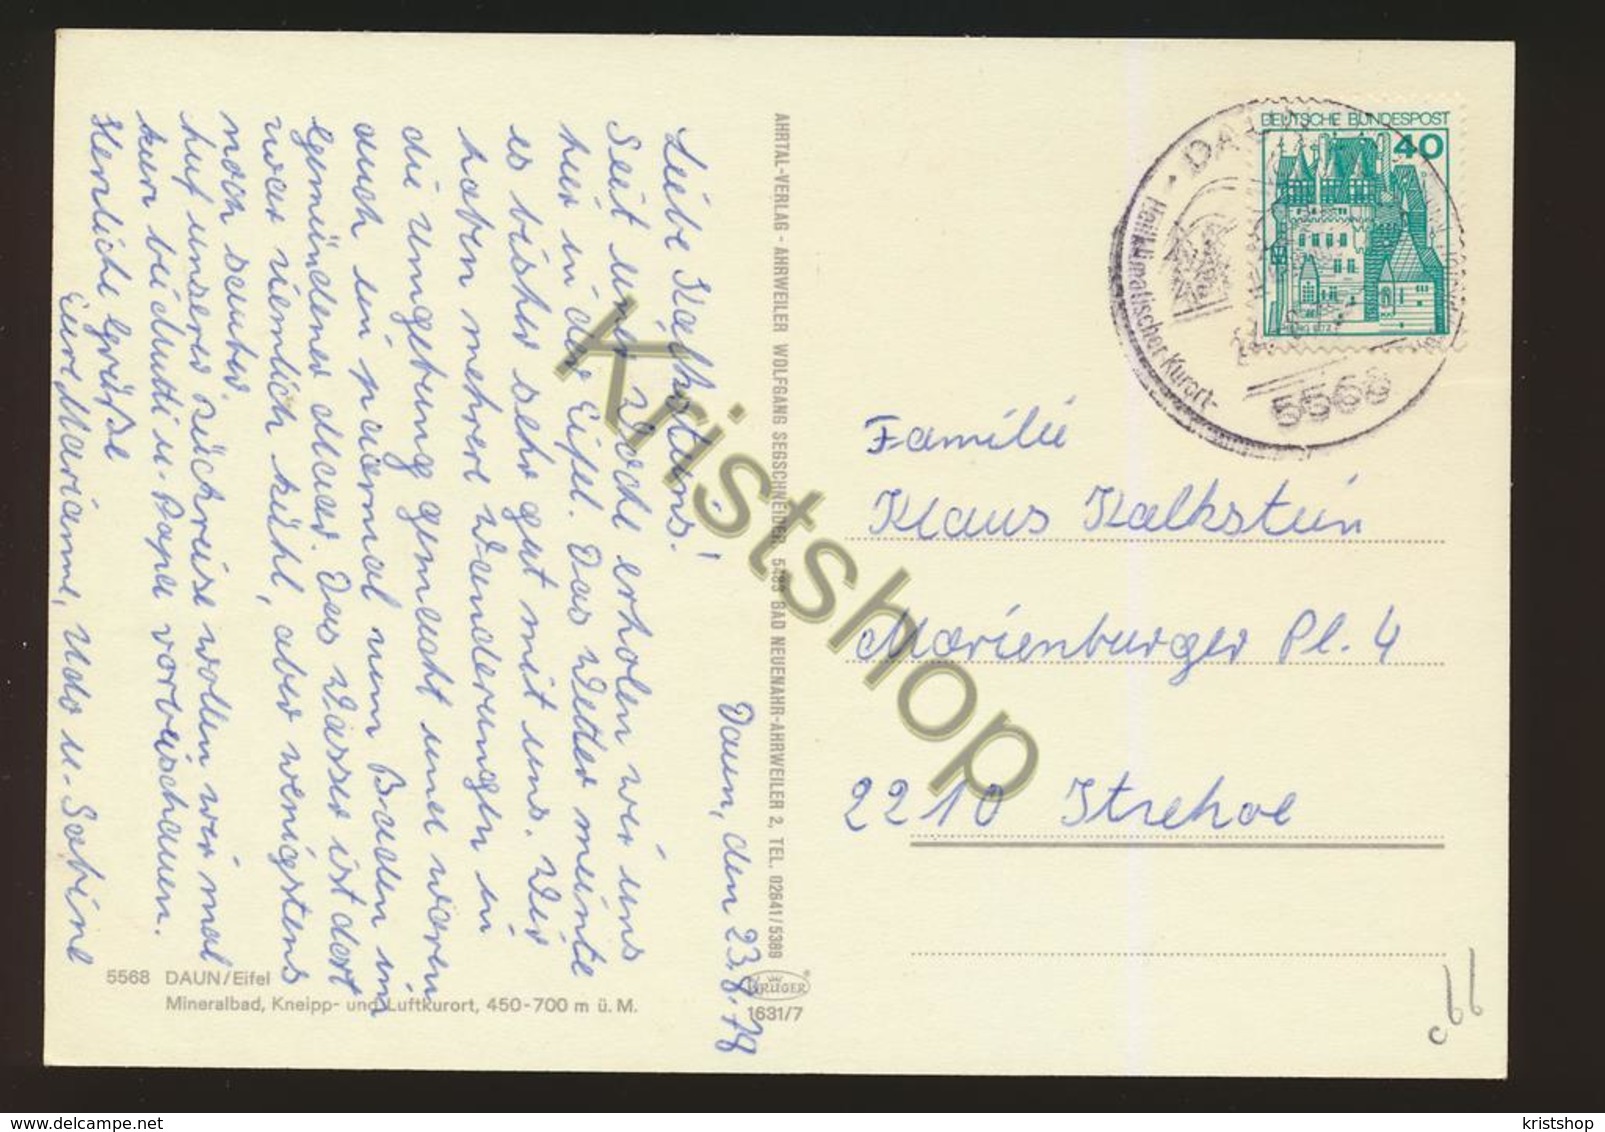 Daun, den 23.8.79
Liebe Kalksteins!
Seit einer Woche erholen wir uns
hier in der Eifel. Das Wetter meinte
es bisher sehr gut mit uns. Wir
haben mehrere Wanderungen in
die Umgebung gemacht und waren
auch ein paarmal zum Baden im
Gemündener Maar. Das Wasser ist dort
zwar ziemlich kühl, aber wenigstens
noch sauber.
Auf unserer Rückreise wollen wir mal
kurz bei Mutti u. Papa vorbeischauen.
Herzliche Grüße
Eure Marianne, Udo u. Sabine
5568 DAUN/Eifel
Mineralbad, Kneipp- und Luftkurort, 450-700 m ü. M.
AHRTAL-VERLAG - AHRWEILER WOLFGANG SEGSCHNEIDER, 5483 BAD NEUENAHR-AHRWEILER 2, TEL. 02641/5389
KRÜGER
1631/7
DEUTSCHE BUNDESPOST
40
Heilklimatischer Kurort-
5568
Familie
Klaus Kalkstein
Marienburger Pl. 4
2210 Itzehoe
Kristshop
kristshop
delcampe.net